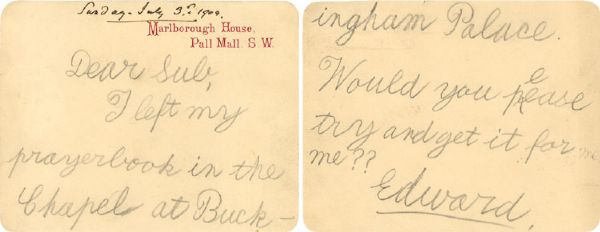 Sunday. July 3rd 1904.
Marlborough House,
Pall Mall. S.W.
Dear Sub,
I left my
prayerbook in the
Chapel at Buck-
ingham Palace.
Would you please
try and get it for me
me??
Edward.